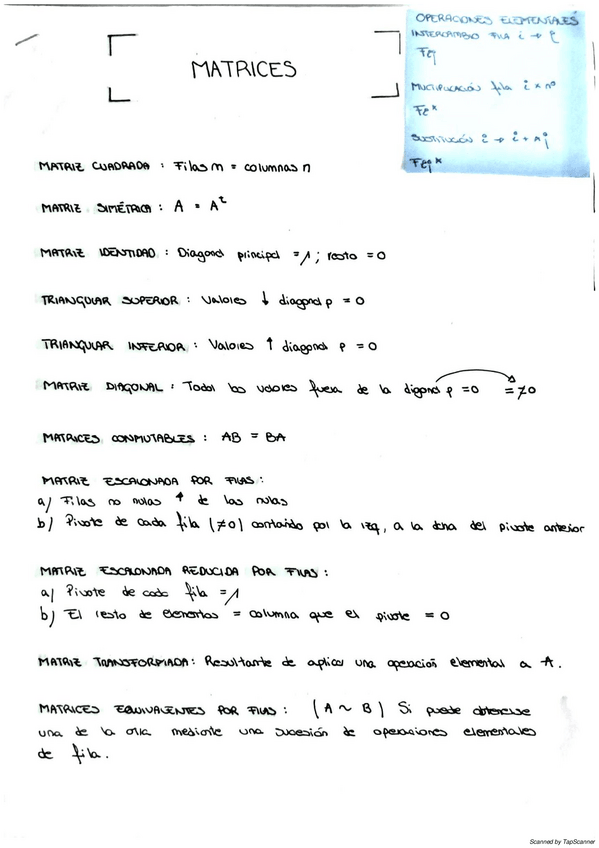 MATRICES
OPERACIONES ELEMENTALES
INTERCAMBIO FILA i →
Fij
MULTIPLICACIÓN fila i x nº
SUSTITUCIÓN i → i + nj
MATRIZ CUADRADA : Filas m = columnas n
MATRIZ SIMÉTRICA : A = Aᵗ
MATRIZ IDENTIDAD : Diagonal principal = 1 ; resto = 0
TRIANGULAR SUPERIOR : Valores ↓ diagonal p = 0
TRIANGULAR INFERIOR : Valores ↑ diagonal p = 0
MATRIZ DIAGONAL : Todos los valores fuera de la digonal p = 0 = ≠ 0
MATRICES CONMUTABLES : AB = BA
MATRIZ ESCALONADA POR FILAS :
a/ Filas no nulas ↑ de las nulas
b/ Pivote de cada fila (≠0) contando por la izq, a la dcha del pivote anterior
MATRIZ ESCALONADA REDUCIDA POR FILAS :
a/ Pivote de cada fila = 1
b) El resto de elementos = columna que el pivote = 0
MATRIZ TRANSFORMADA : Resultante de aplicar una operación elemental a A.
MATRICES EQUIVALENTES POR FILAS : (A ~ B) Si puede obtenerse
una de la otra mediante una sucesión de operaciones elementales
de fila.
Scanned by TapScanner